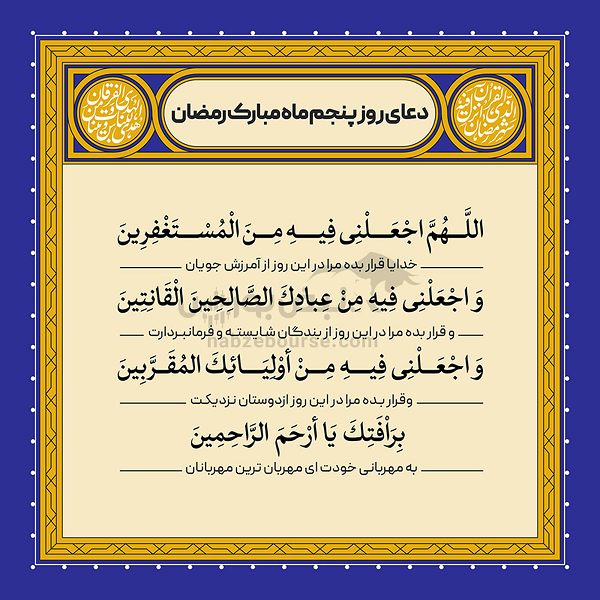 دعای روز پنجم ماه مبارک رمضان
اللَّـهُمَّ اجْعَـلْنِی فِیـهِ مِـنَ الْمُسْـتَغْفِرِینَ
خدایا قرار بده مرا در این روز از آمرزش جویان
وَ اجْعَلْنِی فِیهِ مِنْ عِبادِكَ الصَّالِحِینَ الْقَانِتِینَ
و قرار بده مرا در این روز از بندگان شایسته و فرمانبردارت
وَ اجْعَـلْنِی فِیـهِ مِـنْ أوْلِیَـائِـكَ المُقَـرَّبِینَ
وقرار بده مرا در این روز ازدوستان نزدیکت
بِرَأْفَتِكَ یَا أرْحَمَ الرَّاحِمِینَ
به مهربانی خودت ای مهربان ترین مهربانان
nabzebourse.com